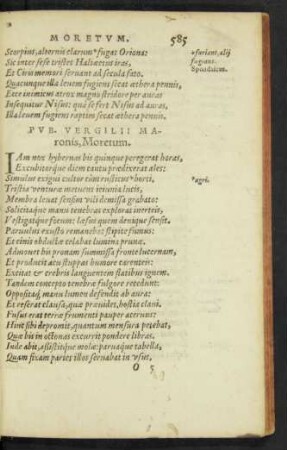 MORETVM. 585
Scorpius, alternis clarum *fugat Oriona:
Sic inter sese tristes Haliaetus iras,
Et Ciris memori seruant ad secula fato.
Quacunque illa leuem fugiens secat æthera pennis,
Ecce inimicus atrox magno stridore per auras
Insequitur Nisus: quà se fert Nisus ad auras,
Illa leuem fugiens raptim secat æthera pennis.
*furiant, alij
fugiant.
PVB. VERGILII MA-
ronis, Moretum.
IAM nox hybernas bis quinque peregerat horas,
Excubitórque diem cantu prædixerat ales:
Simulus exigui cultor cùm rusticus *horti,
*agri.
Tristia venturæ metuens ieiunia lucis,
Membra leuat sensim vili demissa grabato:
Solicitáque manu tenebras explorat inerteis,
Vestigátque focum: læsus quem denique sensit.
Paruulus exusto remanebat stipite fumus:
Et cinis obductæ celabat lumina prunæ.
Admouet his pronam summissa fronte lucernam,
Et producit acu stuppas humore carenteis:
Excitat & crebris languentem flatibus ignem.
Tandem concepto tenebræ fulgore recedunt:
Oppositáq. manu lumen defendit ab aura:
Et reserat clausa, quæ præuidet, hostia claui.
Fusus erat terræ frumenti pauper aceruus:
Hinc sibi depromit, quantum mensura petebat,
Quæ bis in octonas excurrit pondere libras.
Inde abit, assistítque molæ: paruáque tabella,
Quam fixam paries illos seruabat in vsus,
O 5